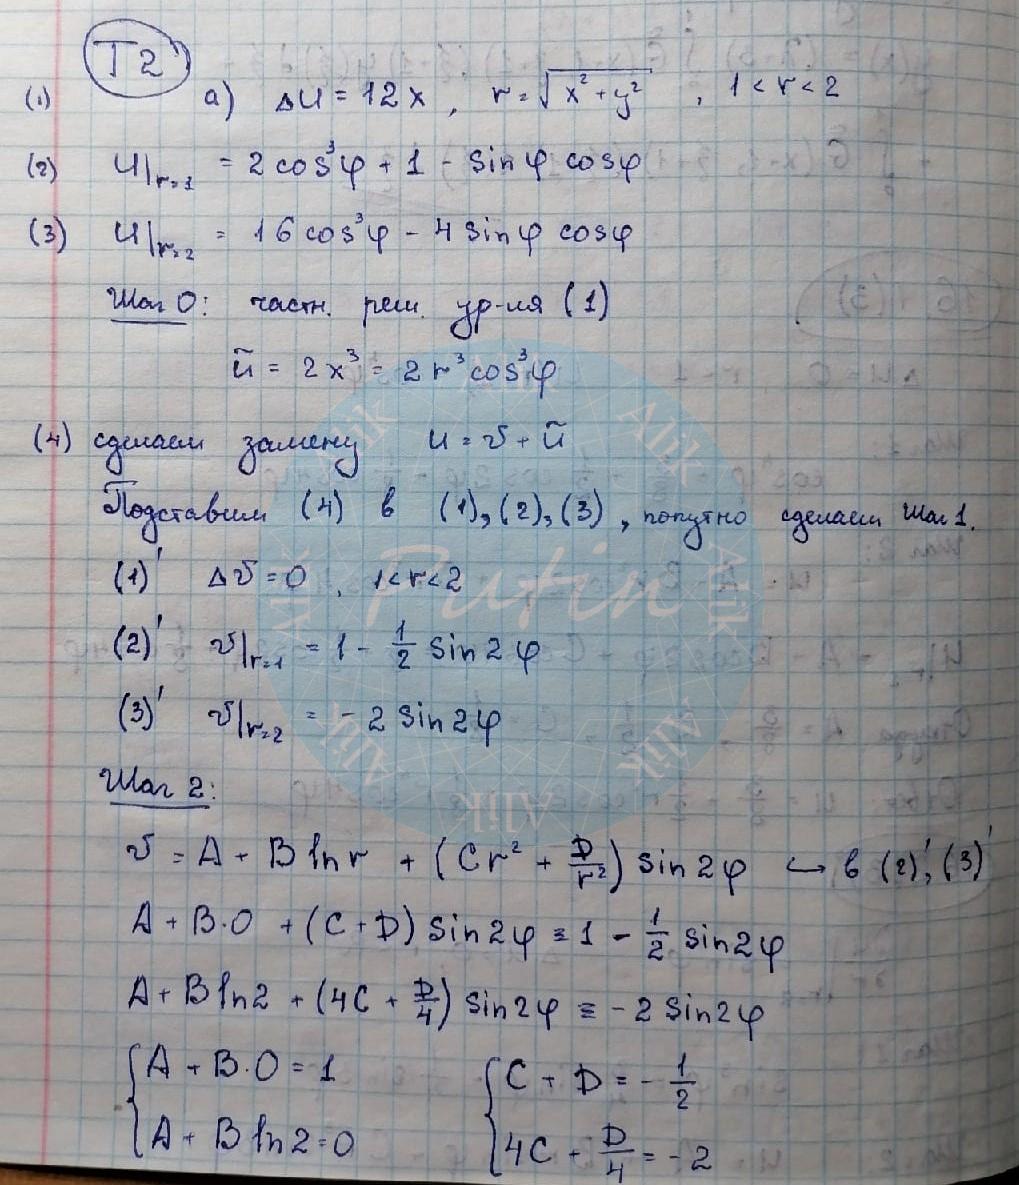 T2
(1) а) Δu = 12x, r = √(x² + y²), 1 < r < 2
(2) u|r=1 = 2 cos³φ + 1 - sinφ cosφ
(3) u|r=2 = 16 cos³φ - 4 sinφ cosφ
Шаг 0: частн. реш. ур-ия (1)
ũ = 2x³ = 2r³cos³φ
(4) сделаем замену u = v + ũ
Подставим (4) в (1), (2), (3), попутно сделаем Шаг 1.
(1)' Δv = 0, 1 < r < 2
(2)' v|r=1 = 1 - 1/2 sin 2φ
(3)' v|r=2 = - 2 sin 2φ
Шаг 2:
v = A + B ln r + (Cr² + D/r²) sin 2φ ↪ в (2)', (3)'
A + B·0 + (C + D) sin 2φ ≡ 1 - 1/2 sin 2φ
A + B ln 2 + (4C + D/4) sin 2φ ≡ - 2 sin 2φ
{ A + B·0 = 1 { C + D = - 1/2
A + B ln 2 = 0 4C + D/4 = - 2
Putin
Alik
Alik
Alik
Alik
Alik
Alik
Alik
Alik